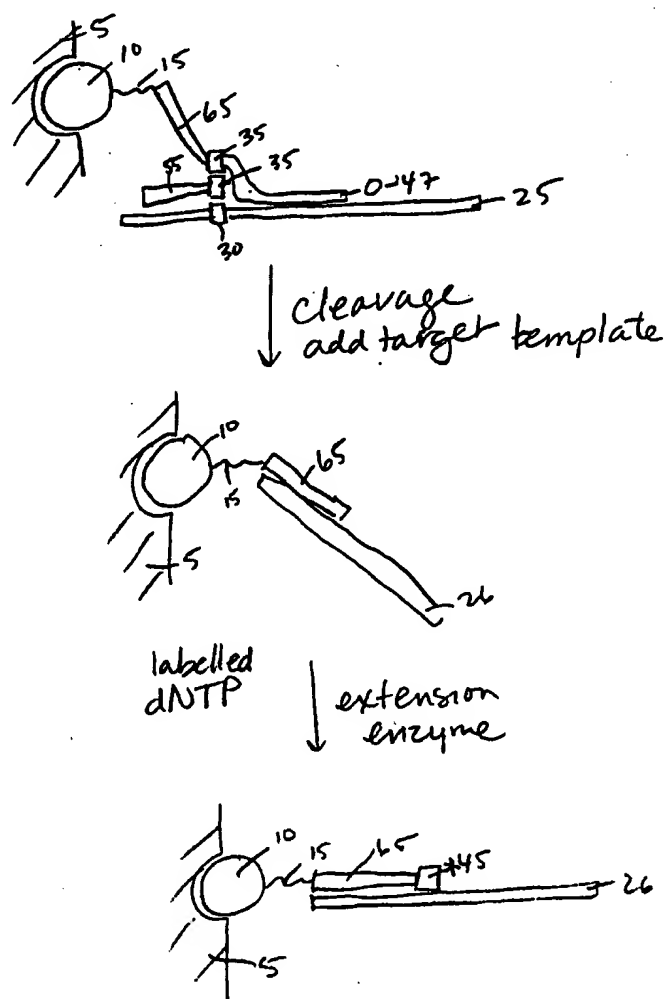 5
10
15
65
35
35
25
30
cleavage
add target template
10
65
15
5
26
labelled
dNTP
extension
enzyme
10
15
65
*45
26
5